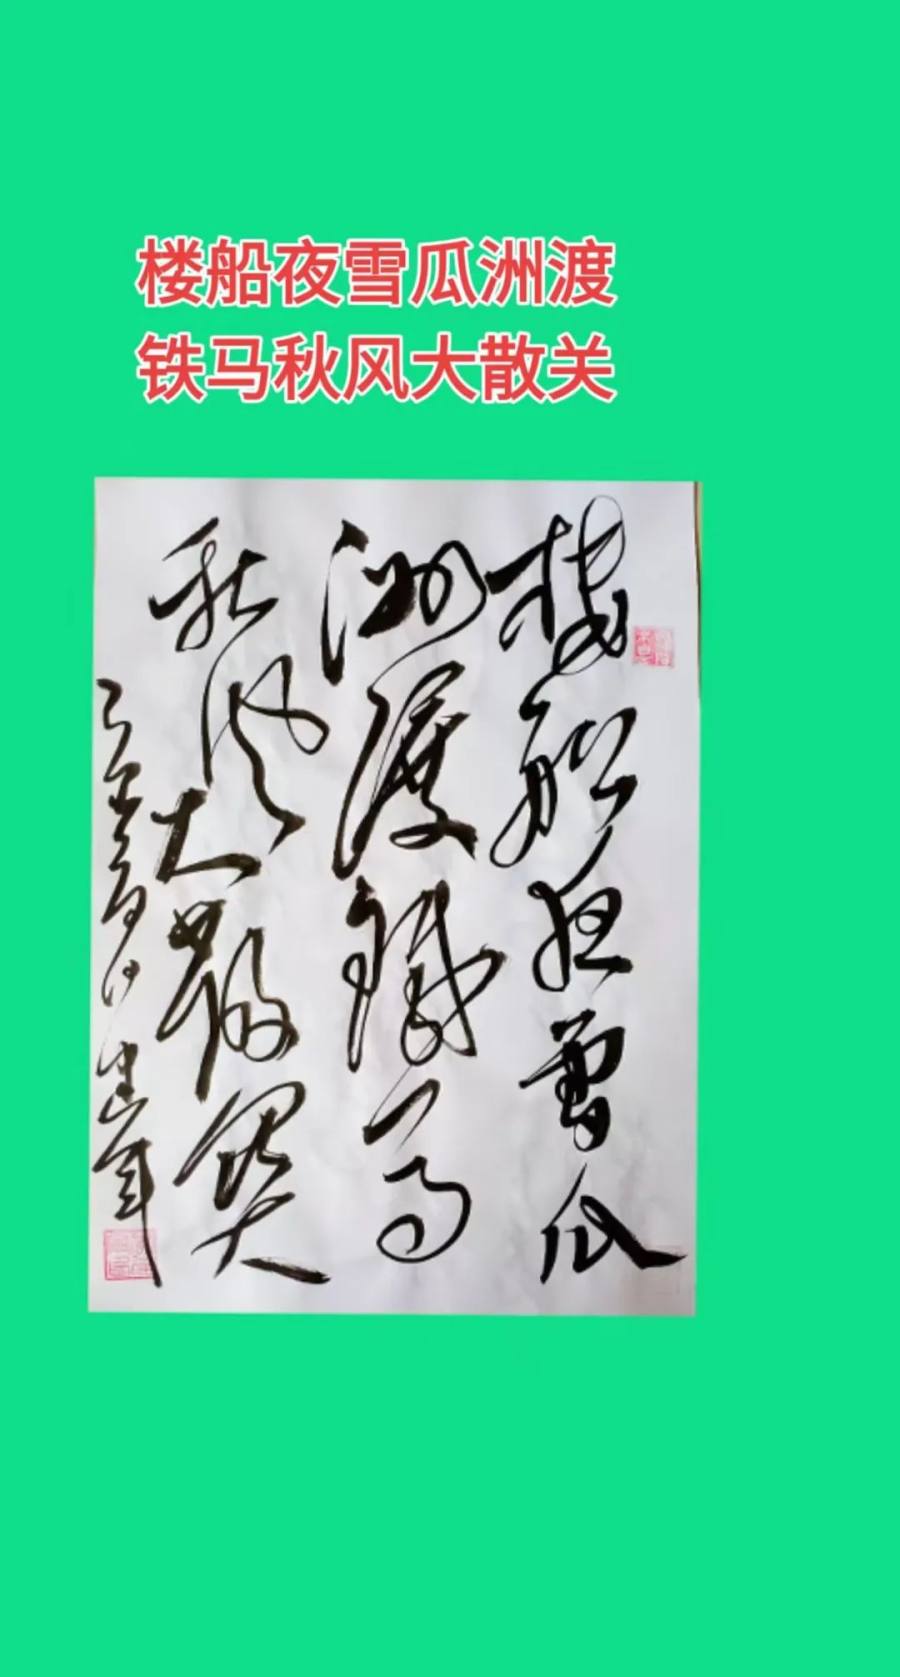 楼船夜雪瓜洲渡
铁马秋风大散关
楼船夜雪瓜
洲渡铁马
秋风大散关